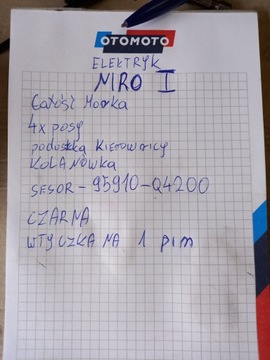 OTOMOTO
ELEKTRYK
NIRO I
Całość Mokka
4x pasy
poduszka Kierownicy
KOLANÓWKA
SESOR - 95910-Q4200
CZARNA
WTYCZKA NA 1 pim